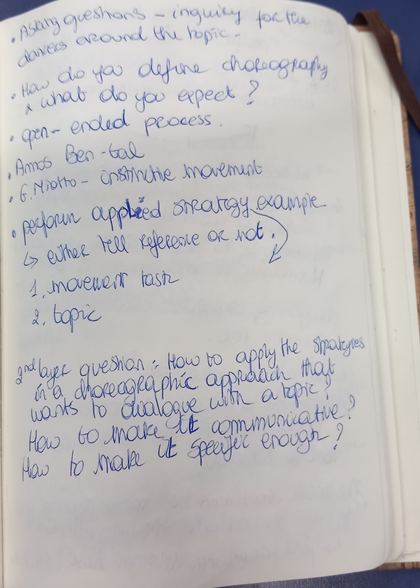 • Asking questions – inquiry for the
dancers around the topic.
• How do you define choreography
& what do you expect?
• open-ended process.
• Amos Ben-Tal
• G. Niotto - instinctive movement
• perform applied strategy example.
↳ either tell reference or not.
1. movement task
2. topic
2nd layer question: How to apply the strategies
in a choreographic approach that
wants to dialogue with a topic?
How to make it communicative?
How to make it specific enough?